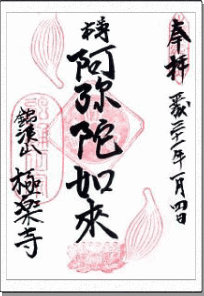 奉拝
平成二十一年一月四日
本尊
阿弥陀如来
極楽寺